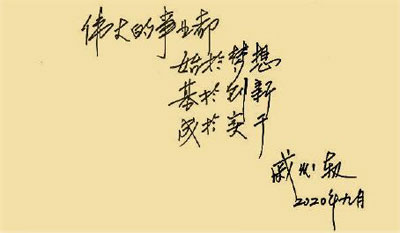 伟大的事业都
始于梦想
基于创新
成于实干
戚发轫
2020年九月